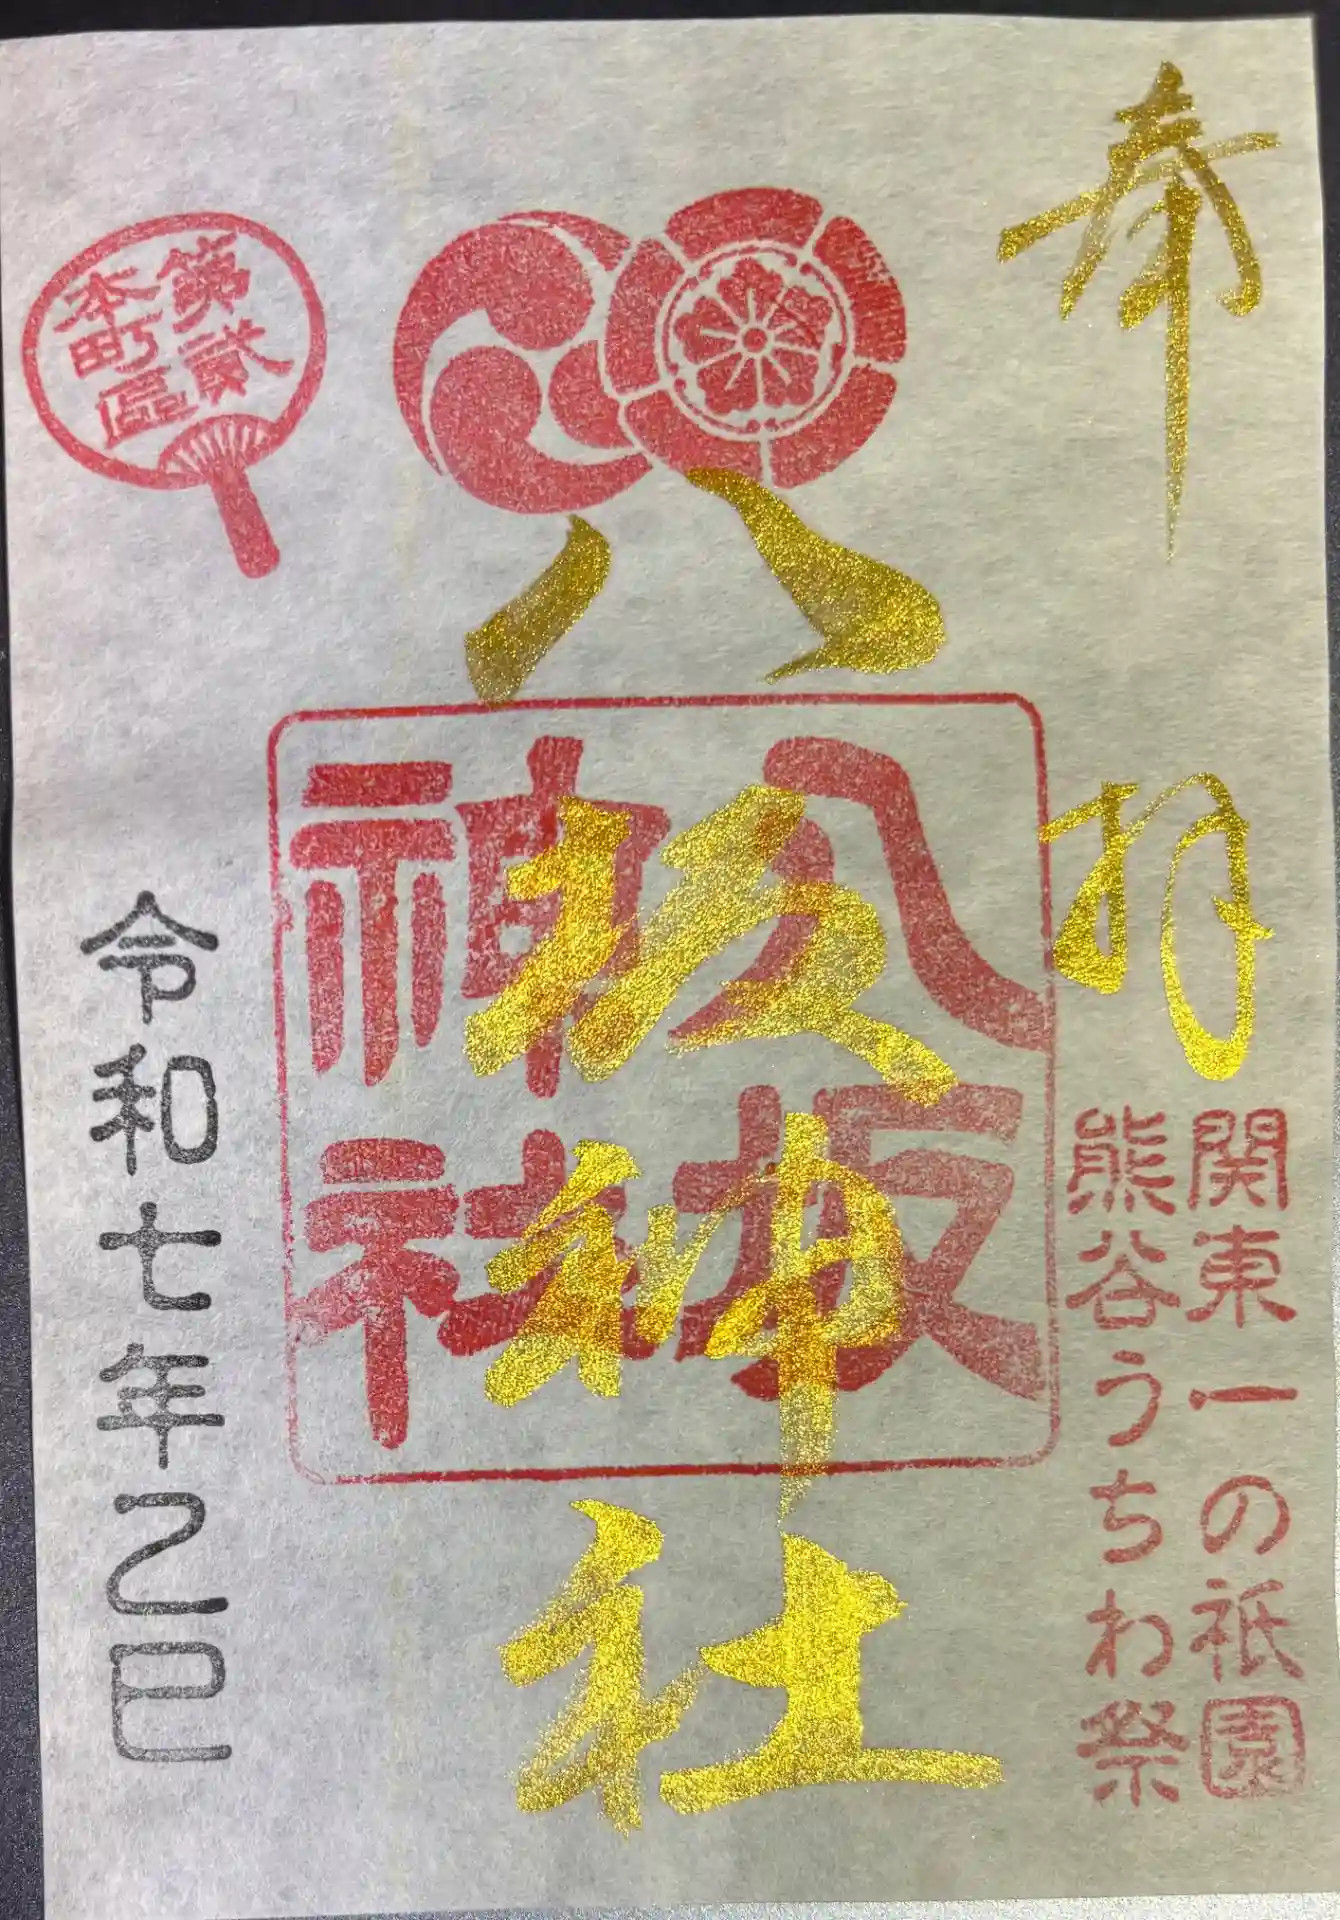 奉拝
関東一の祇園
熊谷うちわ祭
八坂神社
八坂
神社
第弐
本町區
令和七年乙巳